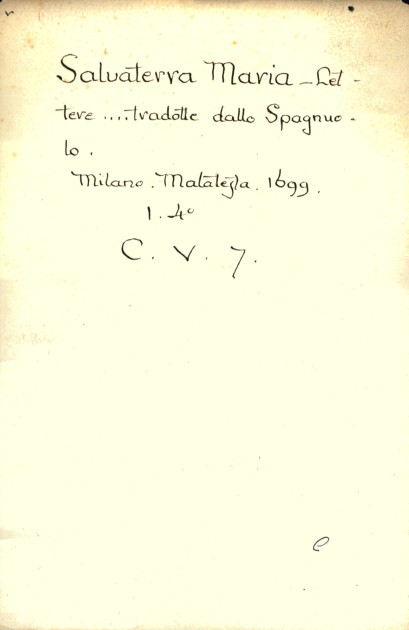 Salvaterra Maria - Let -
tere .... tradotte dallo Spagnuo -
lo .
Milano . Malatesta . 1699 .
1. 4°
C. V. 7.
e